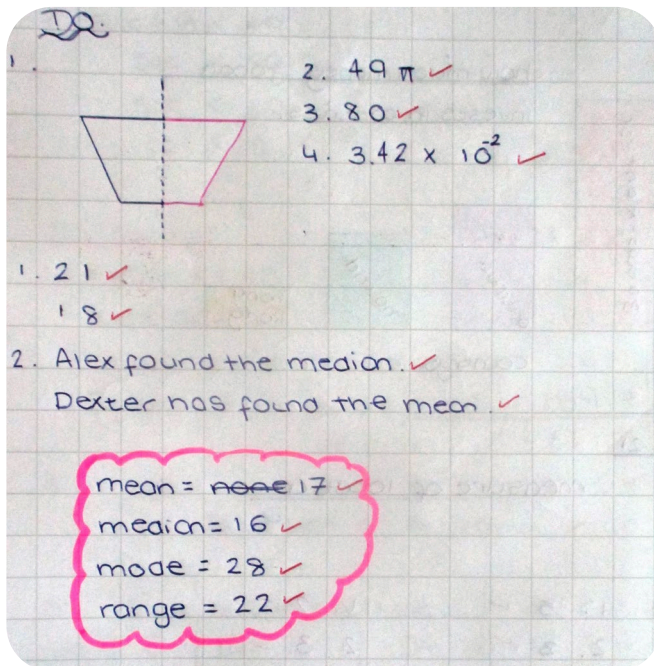 DQ.
1.
2. 49 π ✓
3. 80 ✓
4. 3.42 x 10⁻² ✓
1. 21 ✓
18 ✓
2. Alex found the median. ✓
Dexter has found the mean. ✓
mean = ~~none~~ 17 ✓
median = 16 ✓
mode = 28 ✓
range = 22 ✓